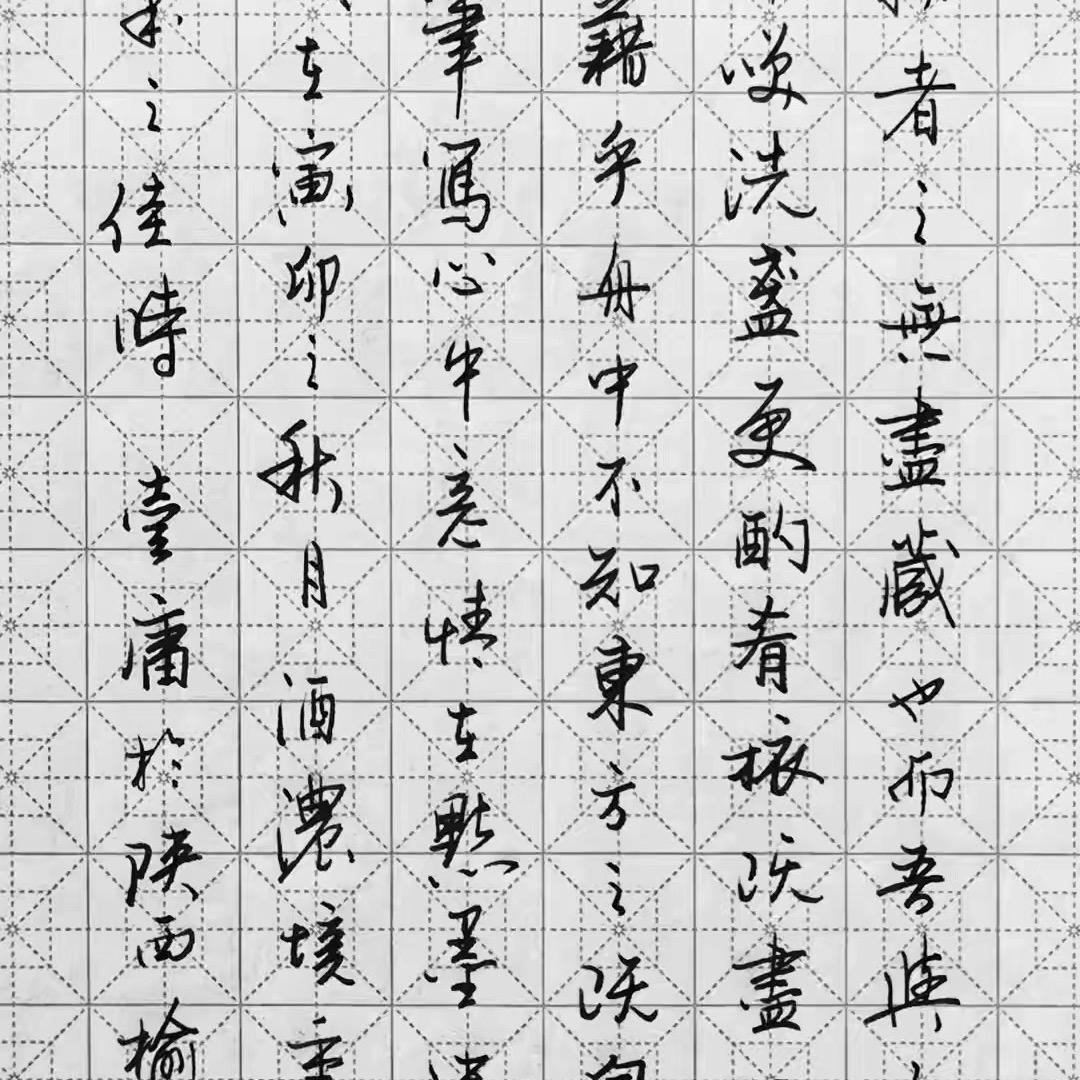 者之無盡藏也而吾與
笑洗盞更酌肴核既盡
藉乎舟中不知東方之既
筆寫心中意情在點墨
在寅卯之秋月 酒濃境
之佳時 壹庸於陝西榆